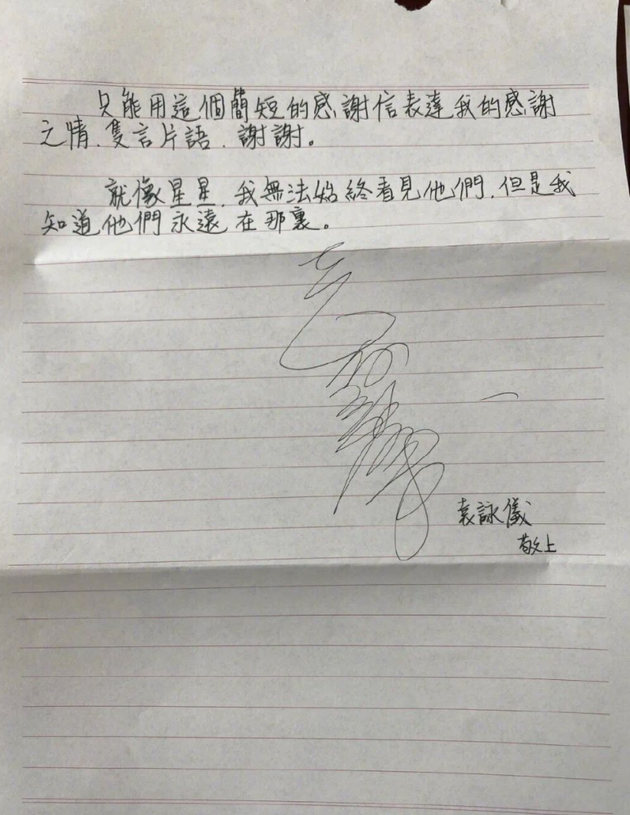 只能用這個簡短的感謝信表達我的感謝
之情、隻言片語、謝謝。
就像星星、我無法始終看見他們、但是我
知道他們永遠在那裏。
袁詠儀
敬上